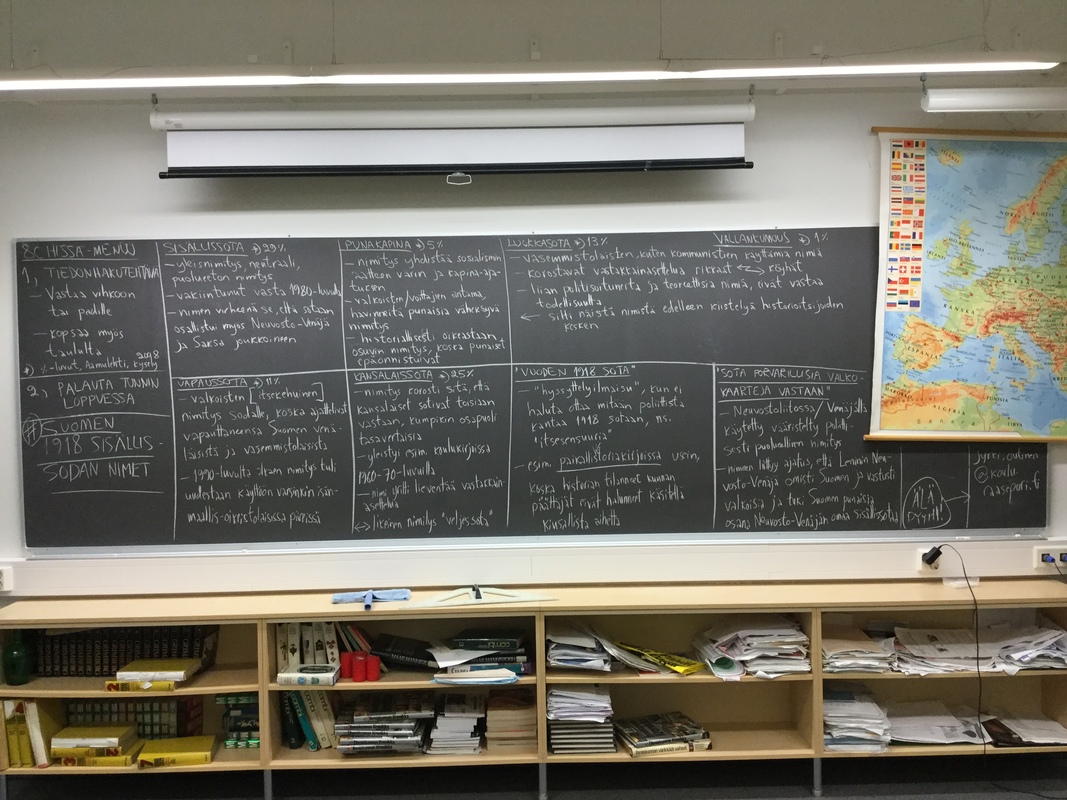 8C HISSA-MENUU
1, TIEDONHAKUTEHTÄVÄ
- Vastaa vihkoon
tai padille
- kopsaa myös
taululta
*) %-luvut, Aamulehti, kysely 2008
2, PALAUTA TUNNIN
LOPPUESSA
# SUOMEN
1918 SISÄLLIS-
SODAN NIMET
SISÄLLISSOTA *) 29%
- yleisnimitys, neutraali,
puolueeton nimitys
- vakiintunut vasta 1980-luvulla
- nimen virheenä se, että sotaan
osallistui myös Neuvosto-Venäjä
ja Saksa joukkoineen
VAPAUSSOTA *) 11%
- valkoisten [itsekehuinen]
nimitys sodalle, koska ajattelivat
vapauttaneensa Suomen venä-
läisistä ja vasemmistolaisista
- 1990-luvulta alkaen nimitys tuli
uudestaan käyttöön varsinkin isän-
maallis-oikeistolaisissa piireissä
PUNAKAPINA *) 5%
- nimitys yhdistää sosialismin
aatteen värin ja kapina-aja-
tuksen
- valkoisten/voittajien antama,
hävinneitä punaisia väheksyvä
nimitys
- historiallisesti oikeastaan
osuvin nimitys, koska punaiset
epäonnistuivat
KANSALAISSOTA *) 25%
- nimitys korosti sitä, että
kansalaiset sotivat toisiaan
vastaan, kumpikin osapuoli
tasavertaisia
- yleistyi esim. koulukirjoissa
1960-70-luvuilla
- nimi yritti lieventää vastakkain-
asettelua
<-> likeinen nimitys "veljessota"
LUOKKASOTA *) 13%
VALLANKUMOUS *) 1%
- vasemmistolaisten, kuten kommunistien käyttämä nimiä
- korostavat vastakkainasettelua rikkaat <-> köyhät
- liian politisoituneita ja teoreettisia nimiä, eivät vastaa
todellisuutta
<- silti näistä nimistä edelleen kiistelyä historioitsijoiden
kesken
"VUODEN 1918 SOTA"
- "hyssyttelyilmaisu", kun ei
haluta ottaa mitään poliittista
kantaa 1918 sotaan, ns.
"itsesensuuria"
- esim. paikallishistoriakirjoissa usein,
koska historian tilanneet kunnan
päättäjät eivät halunneet käsitellä
kiusallista aihetta
"SOTA PORVARILLISIA VALKO-
KAARTEJA VASTAAN"
- Neuvostoliitossa/Venäjällä
käytetty vääristelty poliitti-
sesti puolueellinen nimitys
- nimeen liittyy ajatus, että Leninin Neu-
vosto-Venäjä omisti Suomen ja vastusti
valkoisia ja tuki Suomen punaisia
osana Neuvosto-Venäjän omaa sisällissotaa
ÄLÄ
DYYHI!
@koulu.
raasepori.fi